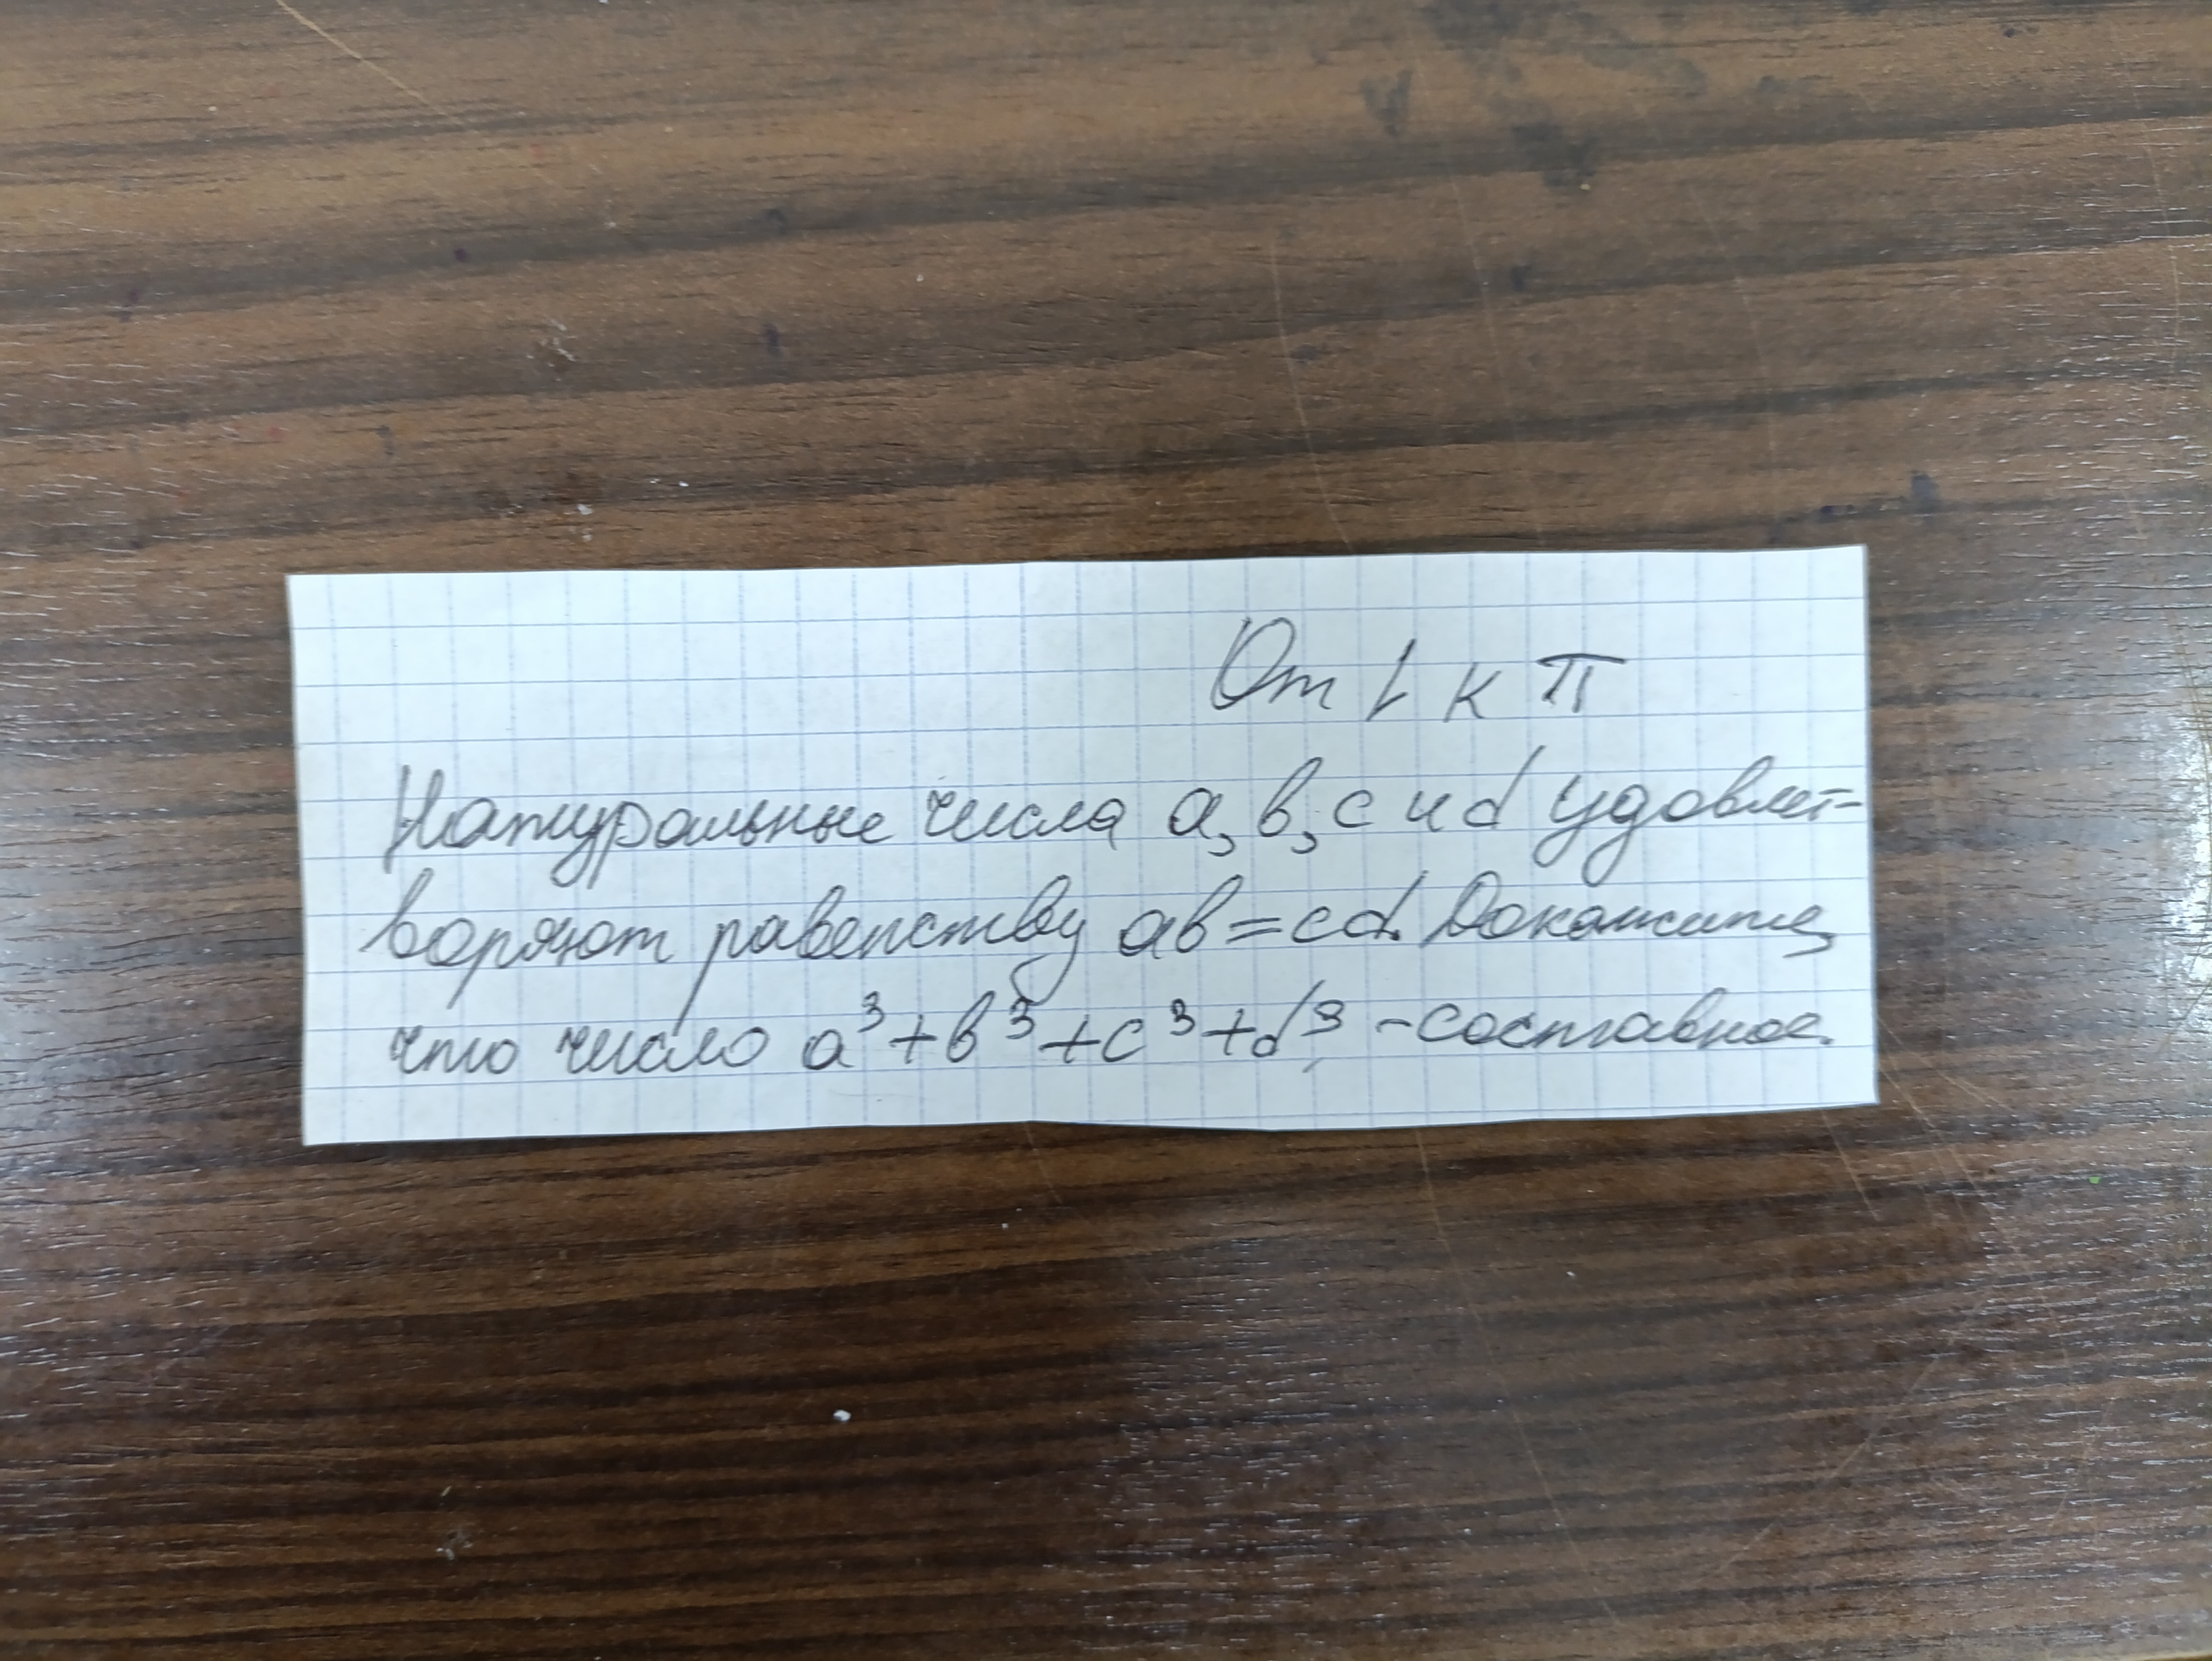 От 1 к π
Натуральные числа a, b, c и d удовлет-
воряют равенству ab=cd. Докажите,
что число a³+b³+c³+d³ - составное.